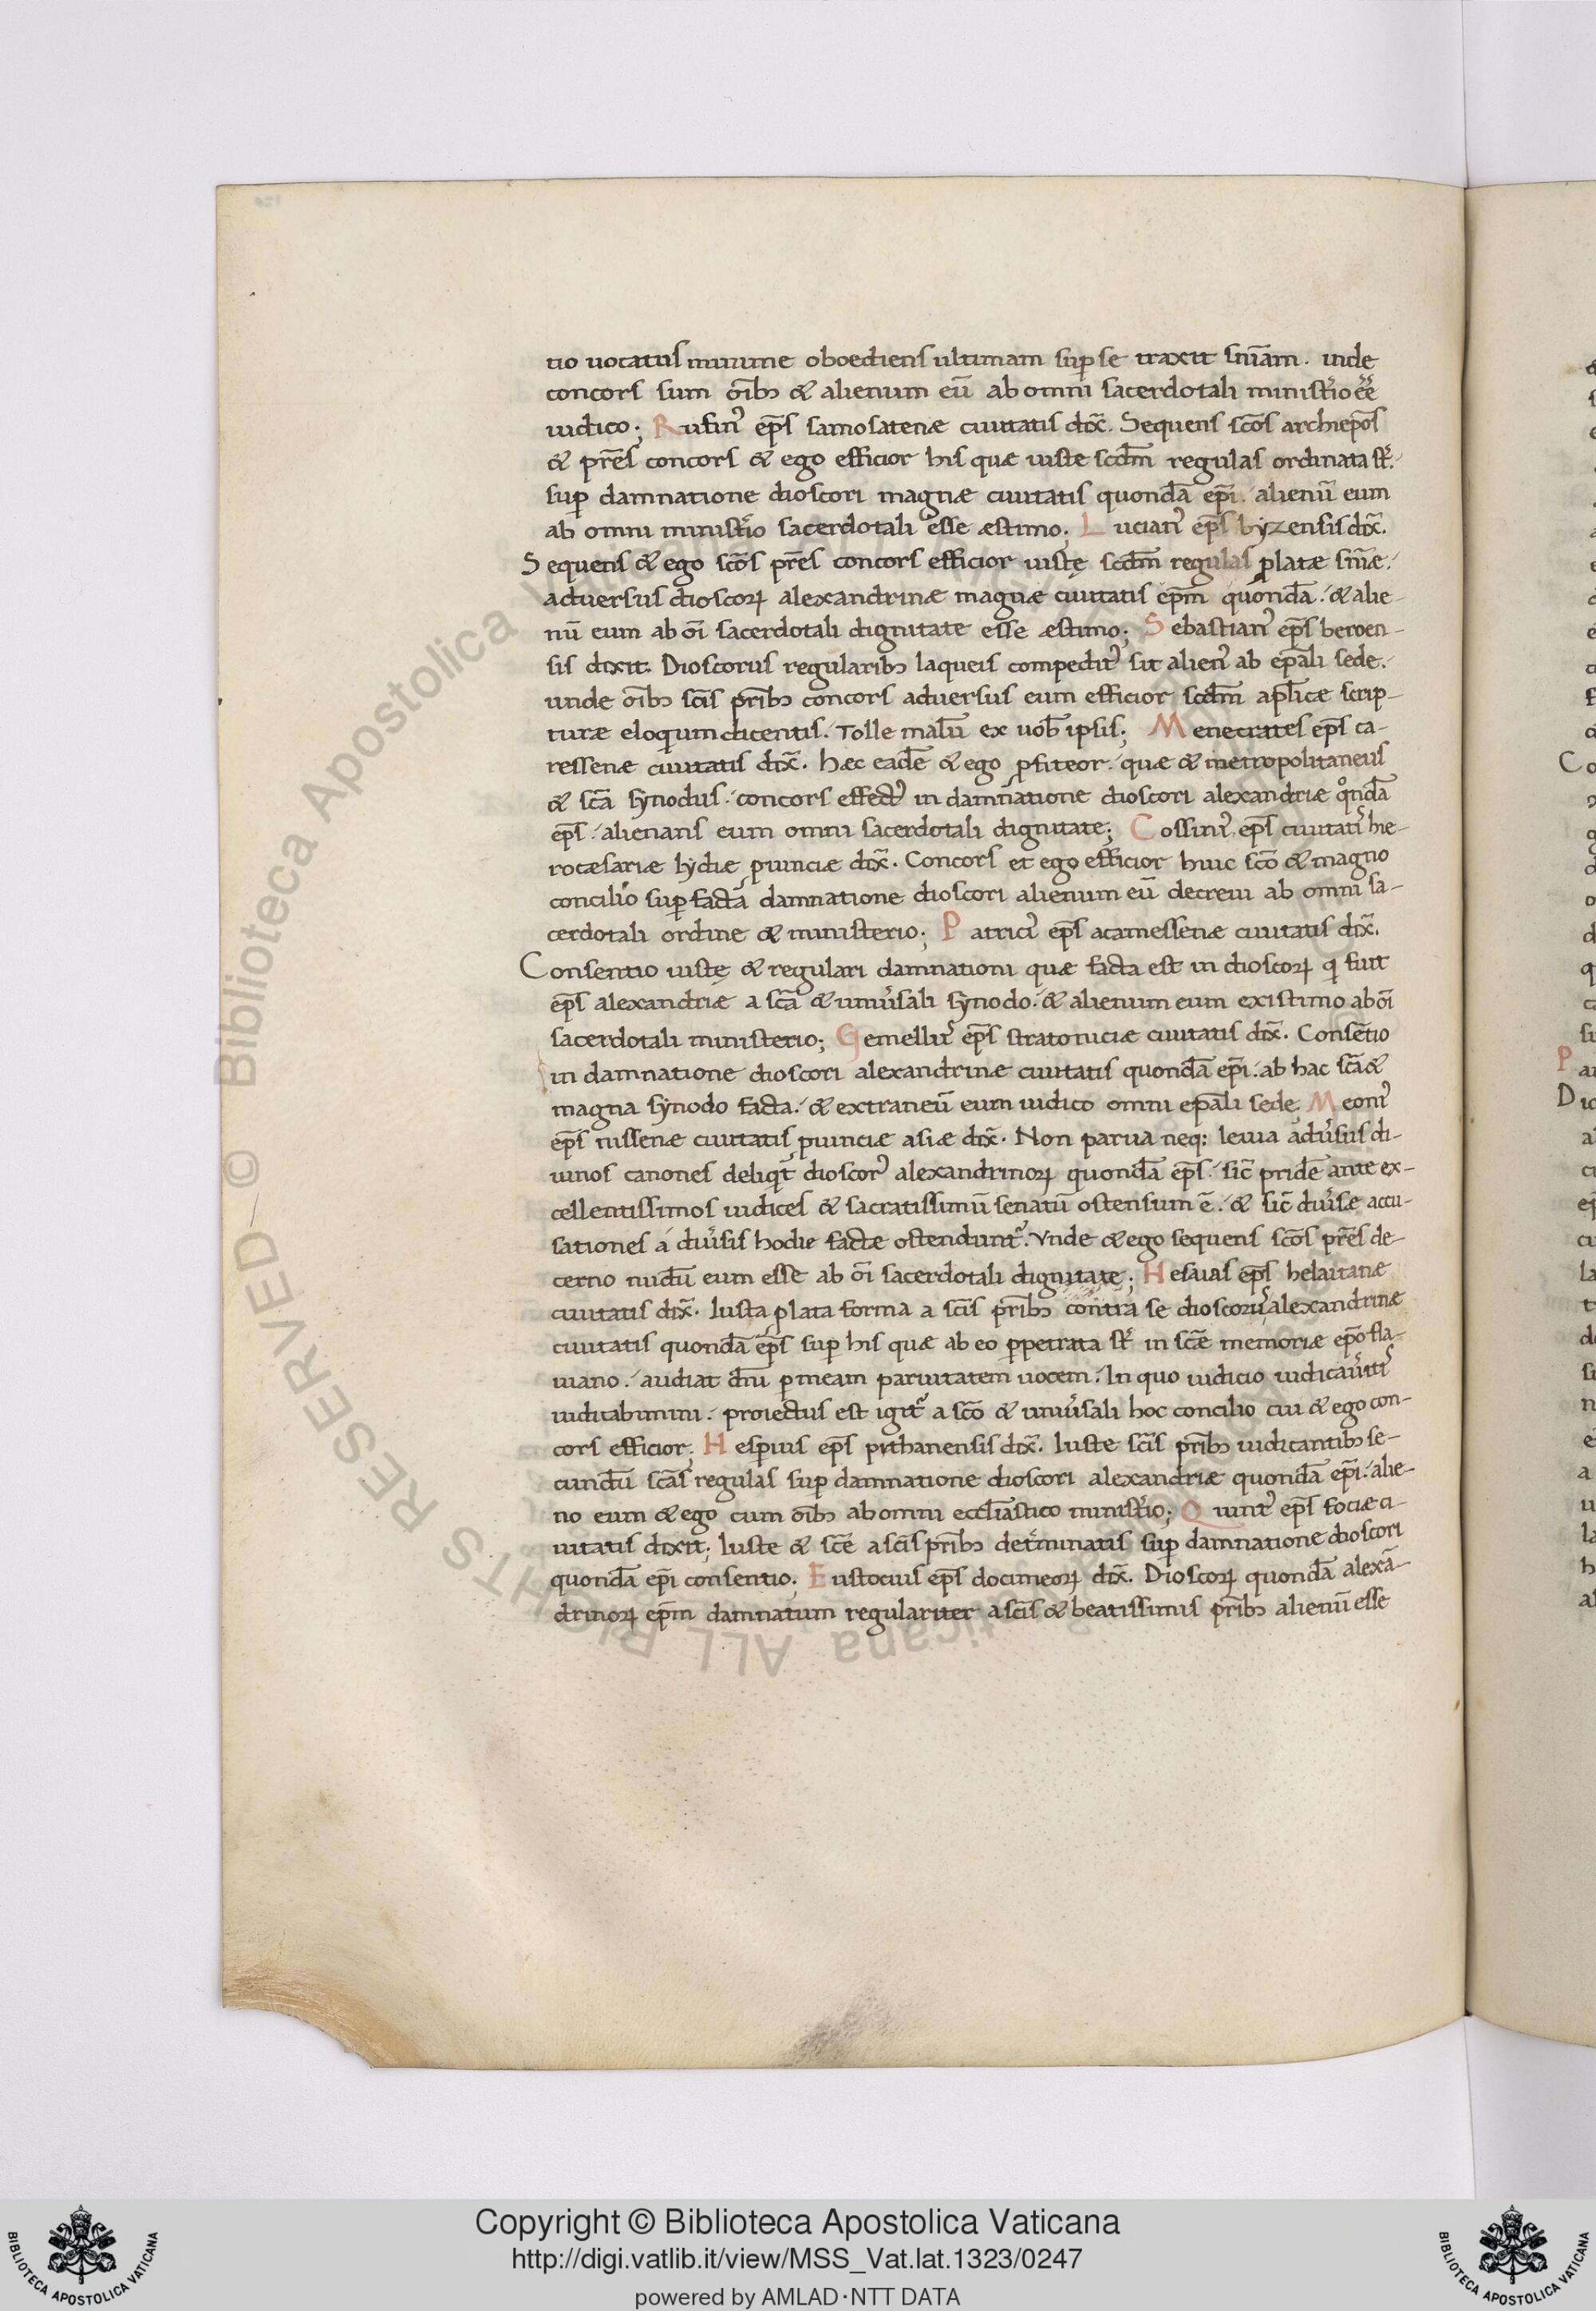 tio uocatus minime oboediens ultimam sup̱ se traxit sñiam. unde
concors sum om̄ib; & alienum eū ab omni sacerdotali minist̄io ēe
iudico; Rufin᾽ ep̄s samosatenæ ciuitatis dix̄. Sequens sc̄os archiep̄os
& pr̄es concors & ego efficior his quæ iuste scdm̄ regulas ordinata st̄.
sup̱ damnatione dioscori magnæ ciuitatis quondā ep̄i. alienū eum
ab omni minist̄io sacerdotali esse æstimo; Lucian᾽ ep̄s byzensis dix̄.
Sequens & ego sc̄os pr̄es concors efficior iustę scdm̄ regulas p̱latæ sñiæ.
aduersus dioscoꝝ alexandrinæ magnæ ciuitatis ep̄m quondā. & alie-
nū eum ab om̄i sacerdotali dignitate esse æstimo; Sebastian᾽ ep̄s beroen-
sis dixit. Dioscorus regularib; laqueis compedit᾽ sit alien᾽ ab ep̄ali sede.
unde om̄ib; sc̄is pr̄ib; concors aduersus eum efficior scdm̄ apl̄icæ scrip-
turæ eloquium dicentis. Tolle malū ex uob̄ ipsis; Menecrates ep̄s ca-
ressenæ ciuitatis dix̄. hæc eadē & ego p̱fiteor. quæ & metropolitaneus
& sc̄a synodus. concors effect᾽ in damnatione dioscori alexandriæ qͦndā
ep̄s. alienans eum omni sacerdotali dignitate; Cossin᾽ ep̄s ciuitat᾽ hie-
rocæsariæ lydiæ p̱uinciæ dix̄. Concors et ego efficior huic sc̄o & magno
concilio sup̱ factā damnatione dioscori alienum eū decreui ab omni sa-
cerdotali ordine & ministerio; Patrici᾽ ep̄s acamessenæ ciuitatis dix̄.
Consentio iustę & regulari damnationi quæ facta est in dioscoꝝ q̄ fuit
ep̄s alexandriæ a sc̄a & uniu᾽sali synodo. & alienum eum existimo ab om̄i
sacerdotali ministerio; Gemellin᾽ ep̄s stratoniciæ ciuitatis dix̄. Consētio
in damnatione dioscori alexandrinæ ciuitatis quondā ep̄i. ab hac sc̄a &
magna synodo facta. & extraneū eum iudico omni ep̄ali sede; Meoni᾽
ep̄s nissenæ ciuitatis p̱uinciæ asiæ dix̄. Non parua neq; leuia aduʼsus di-
uinos canones deliqit᾽ dioscor᾽ alexandrinoꝝ quondā ep̄s. sic̄ pridē ante ex-
cellentissimos iudices & sacratissimū senatū ostensum ē. & sic̄ diuʼsæ accu-
sationes a diuʼsis hodie factæ ostendunt᾽. Vnde & ego sequens sc̄os pr̄es de-
cerno nudū eum esse ab om̄i sacerdotali dignitate; Hesaias ep̄s helaitanæ
ciuitatis dix̄. Iusta p̱lata forma a sc̄is pr̄ib; contra se dioscorū alexandrinæ
ciuitatis quondā ep̄s sup̱ his quæ ab eo p̱petrata st̄ in sc̄æ memoriæ ep̄o fla-
uiano. audiat dn̄i p̱ meam paruitatem uocem. In quo iudicio iudicauʼit᾽
iudicabimini. proiectus est igit᾽ a sc̄o & uniuʼsali hoc concilio cui & ego con-
cors efficior; Hesperius ep̄s pithanensis dix̄. Iuste sc̄is pr̄ib; iudicantib; se-
cundū sc̄as regulas sup̱ damnatione dioscori alexandriæ quondā ep̄i. alie-
no eum & ego cum om̄ib; ab omni eccl̄iastico minist̄io; Quint᾽ ep̄s fociæ ci-
uitatis dixit; Iuste & sc̄e a sc̄is pr̄ib; det̄minatis sup̱ damnatione dioscori
quondā ep̄i consentio; Eustocius ep̄s docimeoꝝ dix̄. Dioscoꝝ quondā alexā-
drinoꝝ ep̄m damnatum regulariter a sc̄is & beatissimis pr̄ib; alienū esse
© Biblioteca Apostolica Vaticana ALL RIGHTS RESERVED
Copyright © Biblioteca Apostolica Vaticana
http://digi.vatlib.it/view/MSS_Vat.lat.1323/0247
powered by AMLAD·NTT DATA
BIBLIOTECA APOSTOLICA VATICANA
BIBLIOTECA APOSTOLICA VATICANA